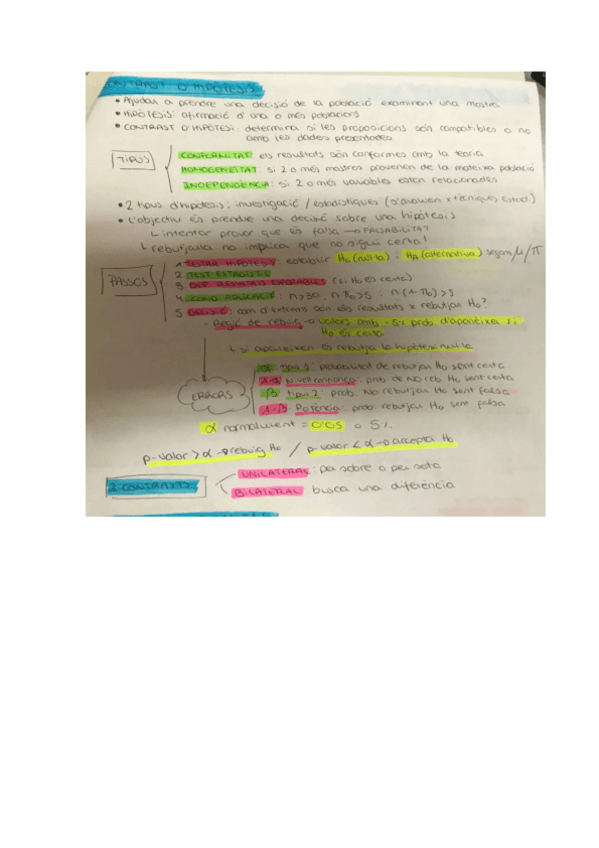 CONTRAST D'HIPÒTESIS
• Ajuden a prendre una decisió de la població examinent una mostra
• HIPÒTESIS: afirmació d'una o més poblacions
• CONTRAST D'HIPÒTESI: determina si les proposicions són compatibles o no
amb les dades presentades
TIPUS
CONFORMITAT: els resultats són conformes amb la teoria
HOMOGENEITAT: si 2 o més mostres provenen de la mateixa població
INDEPENDÈNCIA: si 2 o més variables estan relacionades
• 2 tipus d'hipòtesis: investigació / estadístiques (s'avaluen x tècniques estad.)
• L'objectiu és prendre una decisió sobre una hipòtesis
↳ intentar provar que és falsa → FALSABILITAT
↳ rebutjarla no implica que no sigui certa!
PASSOS
1 TESTAR HIPÒTESI: establir H₀ (nul·la) i Hₐ (alternativa) segons μ/π
2 TEST ESTADÍSTIC
3 DEF. RESULTATS ESPERABLES (si H₀ és certa)
4 COND. APLICACIÓ: n>30, n·π₀>5 i n(1-π₀)>5
5 DECISIÓ: com d'extrems són els resultats x rebutjar H₀?
- Regió de rebuig → valors amb -5% prob. d'aparèixer si
H₀ és certa
↳ si apareixen es rebutja la hipòtesi nul·la
ERRORS
α: tipus 1: probabilitat de rebutjar H₀ sent certa
1-α: Nivell confiança: prob. de NO reb. H₀ sent certa
β: tipus 2: prob. No rebutjar H₀ sent falsa
1-β: Potència: prob. rebutjar H₀ sent falsa
α normalment = 0'05 o 5%
p-valor > α → rebuig H₀ / p-valor < α → accepta H₀
2 CONTRASTS
UNILATERAL: per sobre o per sota
BILATERAL: busca una diferència